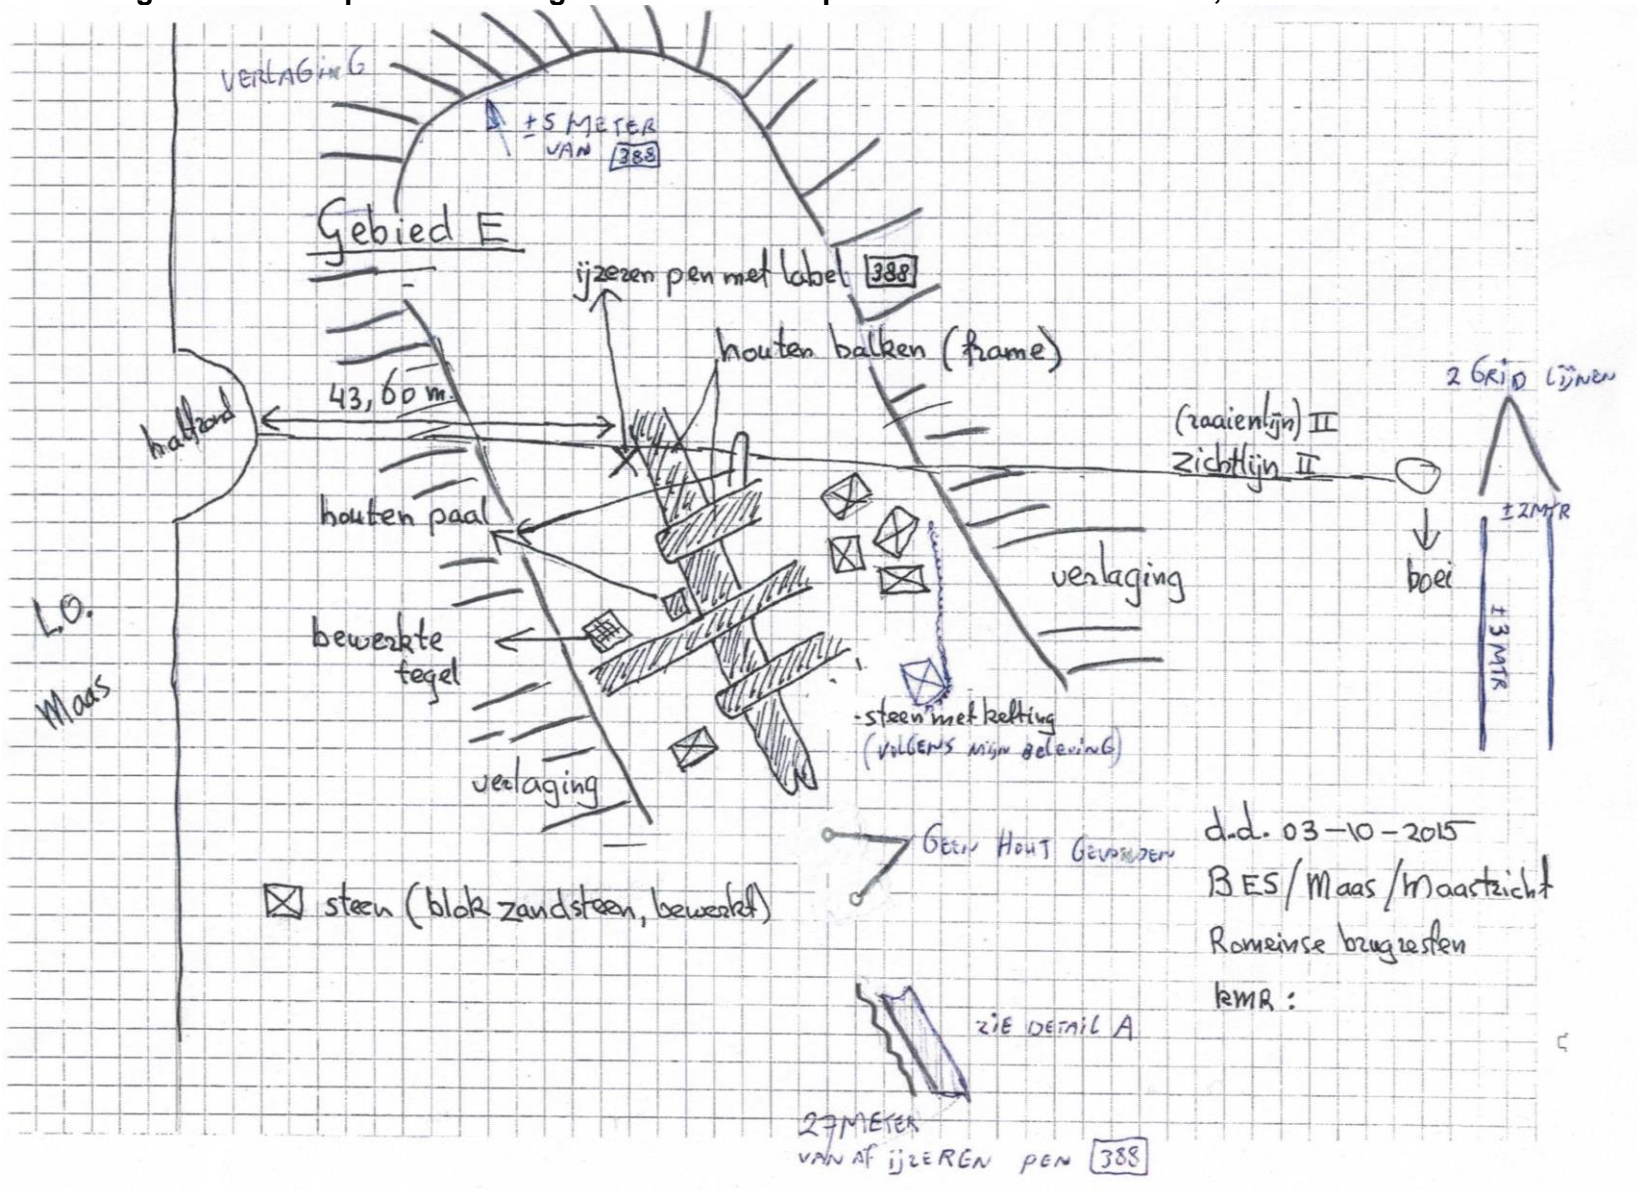 VERLAGING
±5 METER
VAN 388
Gebied E
ijzeren pen met label 388
houten balken (frame)
43,60 m.
halfrond
2 GRID LIJNEN
(raaienlijn) II
Zichtlijn II
±2MTR
houten paal
boei
verlaging
±3 MTR
L.O.
Maas
bewerkte
tegel
steen met ketting
(VOLGENS MIJN BELEVING)
verlaging
GEEN HOUT GEVONDEN
d.d. 03-10-2015
BES/Maas/Maastricht
Romeinse brugresten
KMR:
steen (blok zandsteen, bewerkt)
ZIE DETAIL A
27 METER
VANAF IJZEREN PEN 388